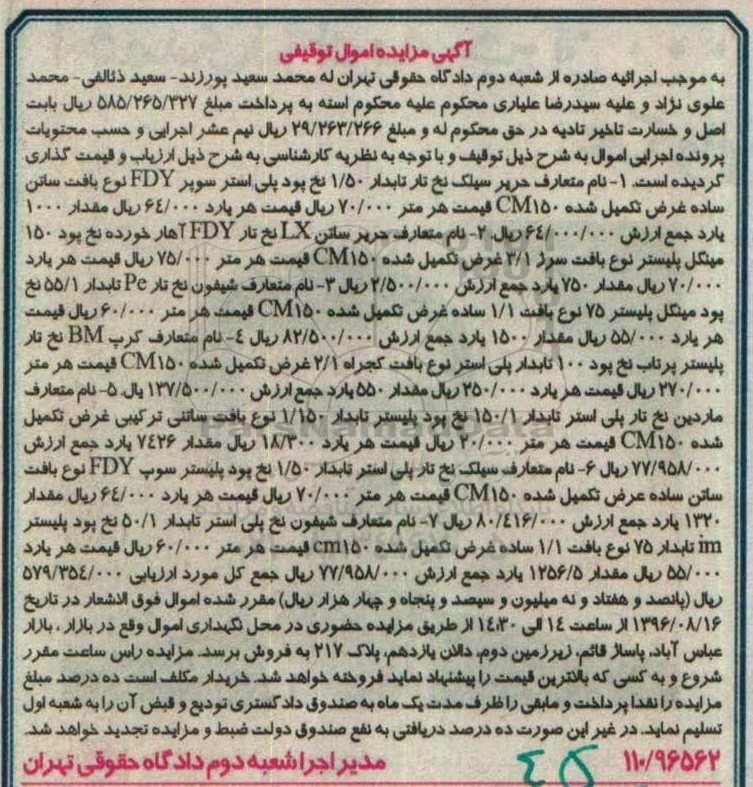 آگهی مزایده اموال توقیفی
به موجب اجرائیه صادره از شعبه دوم دادگاه حقوقی تهران له محمد سعید پورزند- سعید ذئالفی- محمد
علوی نژاد و علیه سیدرضا علیاری محکوم علیه محکوم استه به پرداخت مبلغ ۵۸۵/۲۶۵/۳۲۷ ریال بابت
اصل و خسارت تاخیر تادیه در حق محکوم له و مبلغ ۲۹/۲۶۳/۲۶۶ ریال نیم عشر اجرایی و حسب محتویات
پرونده اجرایی اموال به شرح ذیل توقیف و با توجه به نظریه کارشناسی به شرح ذیل ارزیاب و قیمت گذاری
گردیده است. ۱- نام متعارف حریر سیلک نخ تار تابدار ۱/۵۰ نخ پود پلی استر سوپر FDY نوع بافت ساتن
ساده غرض تکمیل شده CM۱۵۰ قیمت هر متر ۷۰/۰۰۰ ریال قیمت هر یارد ۶۴/۰۰۰ ریال مقدار ۱۰۰۰
یارد جمع ارزش ۶۴/۰۰۰/۰۰۰ ریال. ۲- نام متعارف حریر ساتن LX نخ تار FDY آهار خورده نخ پود ۱۵۰
مینگل پلیستر نوع بافت سرژ ۳/۱ غرض تکمیل شده CM۱۵۰ قیمت هر متر ۷۵/۰۰۰ ریال قیمت هر یارد
۷۰/۰۰۰ ریال مقدار ۷۵۰ یارد جمع ارزش ۲/۵۰۰/۰۰۰ ریال ۳- نام متعارف شیفون نخ تار Pe تابدار ۵۵/۱ نخ
پود مینگل پلیستر ۷۵ نوع بافت ۱/۱ ساده غرض تکمیل شده CM۱۵۰ قیمت هر متر ۶۰/۰۰۰ ریال قیمت
هر یارد ۵۵/۰۰۰ ریال مقدار ۱۵۰۰ یارد جمع ارزش ۸۲/۵۰۰/۰۰۰ ریال ۴- نام متعارف کرپ BM نخ تار
پلیستر پرتاب نخ پود ۱۰۰ تابدار پلی استر نوع بافت کجراه ۲/۱ غرض تکمیل شده CM۱۵۰ قیمت هر متر
۲۷۰/۰۰۰ ریال قیمت هر یارد ۲۵۰/۰۰۰ ریال مقدار ۵۵۰ یارد جمع ارزش ۱۳۷/۵۰۰/۰۰۰ یال. ۵- نام متعارف
ماردین نخ تار پلی استر تابدار ۱۵۰/۱ نخ پود پلیستر تابدار ۱/۱۵۰ نوع بافت ساتنی ترکیبی غرض تکمیل
شده CM۱۵۰ قیمت هر متر ۲۰/۰۰۰ ریال قیمت هر یارد ۱۸/۳۰۰ ریال مقدار ۷۴۲۶ یارد جمع ارزش
۷۷/۹۵۸/۰۰۰ ریال ۶- نام متعارف سیلک نخ تار پلی استر تابدار ۱/۵۰ نخ پود پلیستر سوپ FDY نوع بافت
ساتن ساده عرض تکمیل شده CM۱۵۰ قیمت هر متر ۷۰/۰۰۰ ریال قیمت هر یارد ۶۴/۰۰۰ ریال مقدار
۱۳۲۰ یارد جمع ارزش ۸۰/۴۱۶/۰۰۰ ریال ۷- نام متعارف شیفون نخ پلی استر تابدار ۵۰/۱ نخ پود پلیستر
im تابدار ۷۵ نوع بافت ۱/۱ ساده غرض تکمیل شده cm۱۵۰ قیمت هر متر ۶۰/۰۰۰ ریال قیمت هر یارد
۵۵/۰۰۰ ریال مقدار ۱۲۵۶/۵ یارد جمع ارزش ۷۷/۹۵۸/۰۰۰ ریال جمع کل مورد ارزیابی ۵۷۹/۳۵۴/۰۰۰
ریال (پانصد و هفتاد و نه میلیون و سیصد و پنجاه و چهار هزار ریال) مقرر شده اموال فوق الاشعار در تاریخ
۱۳۹۶/۰۸/۱۶ از ساعت ۱۴ الی ۱۴:۳۰ از طریق مزایده حضوری در محل نگهداری اموال وقع در بازار ، بازار
عباس آباد، پاساژ قائم، زیرزمین دوم، دالان یازدهم، پلاک ۲۱۷ به فروش برسد. مزایده راس ساعت مقرر
شروع و به کسی که بالاترین قیمت را پیشنهاد نماید فروخته خواهد شد. خریدار مکلف است ده درصد مبلغ
مزایده را نقدا پرداخت و مابقی را ظرف مدت یک ماه به صندوق دادگستری تودیع و قبض آن را به شعبه اول
تسلیم نماید. در غیر این صورت ده درصد دریافتی به نفع صندوق دولت ضبط و مزایده تجدید خواهد شد.
۱۱۰/۹۶۵۶۲ مدیر اجرا شعبه دوم دادگاه حقوقی تهران